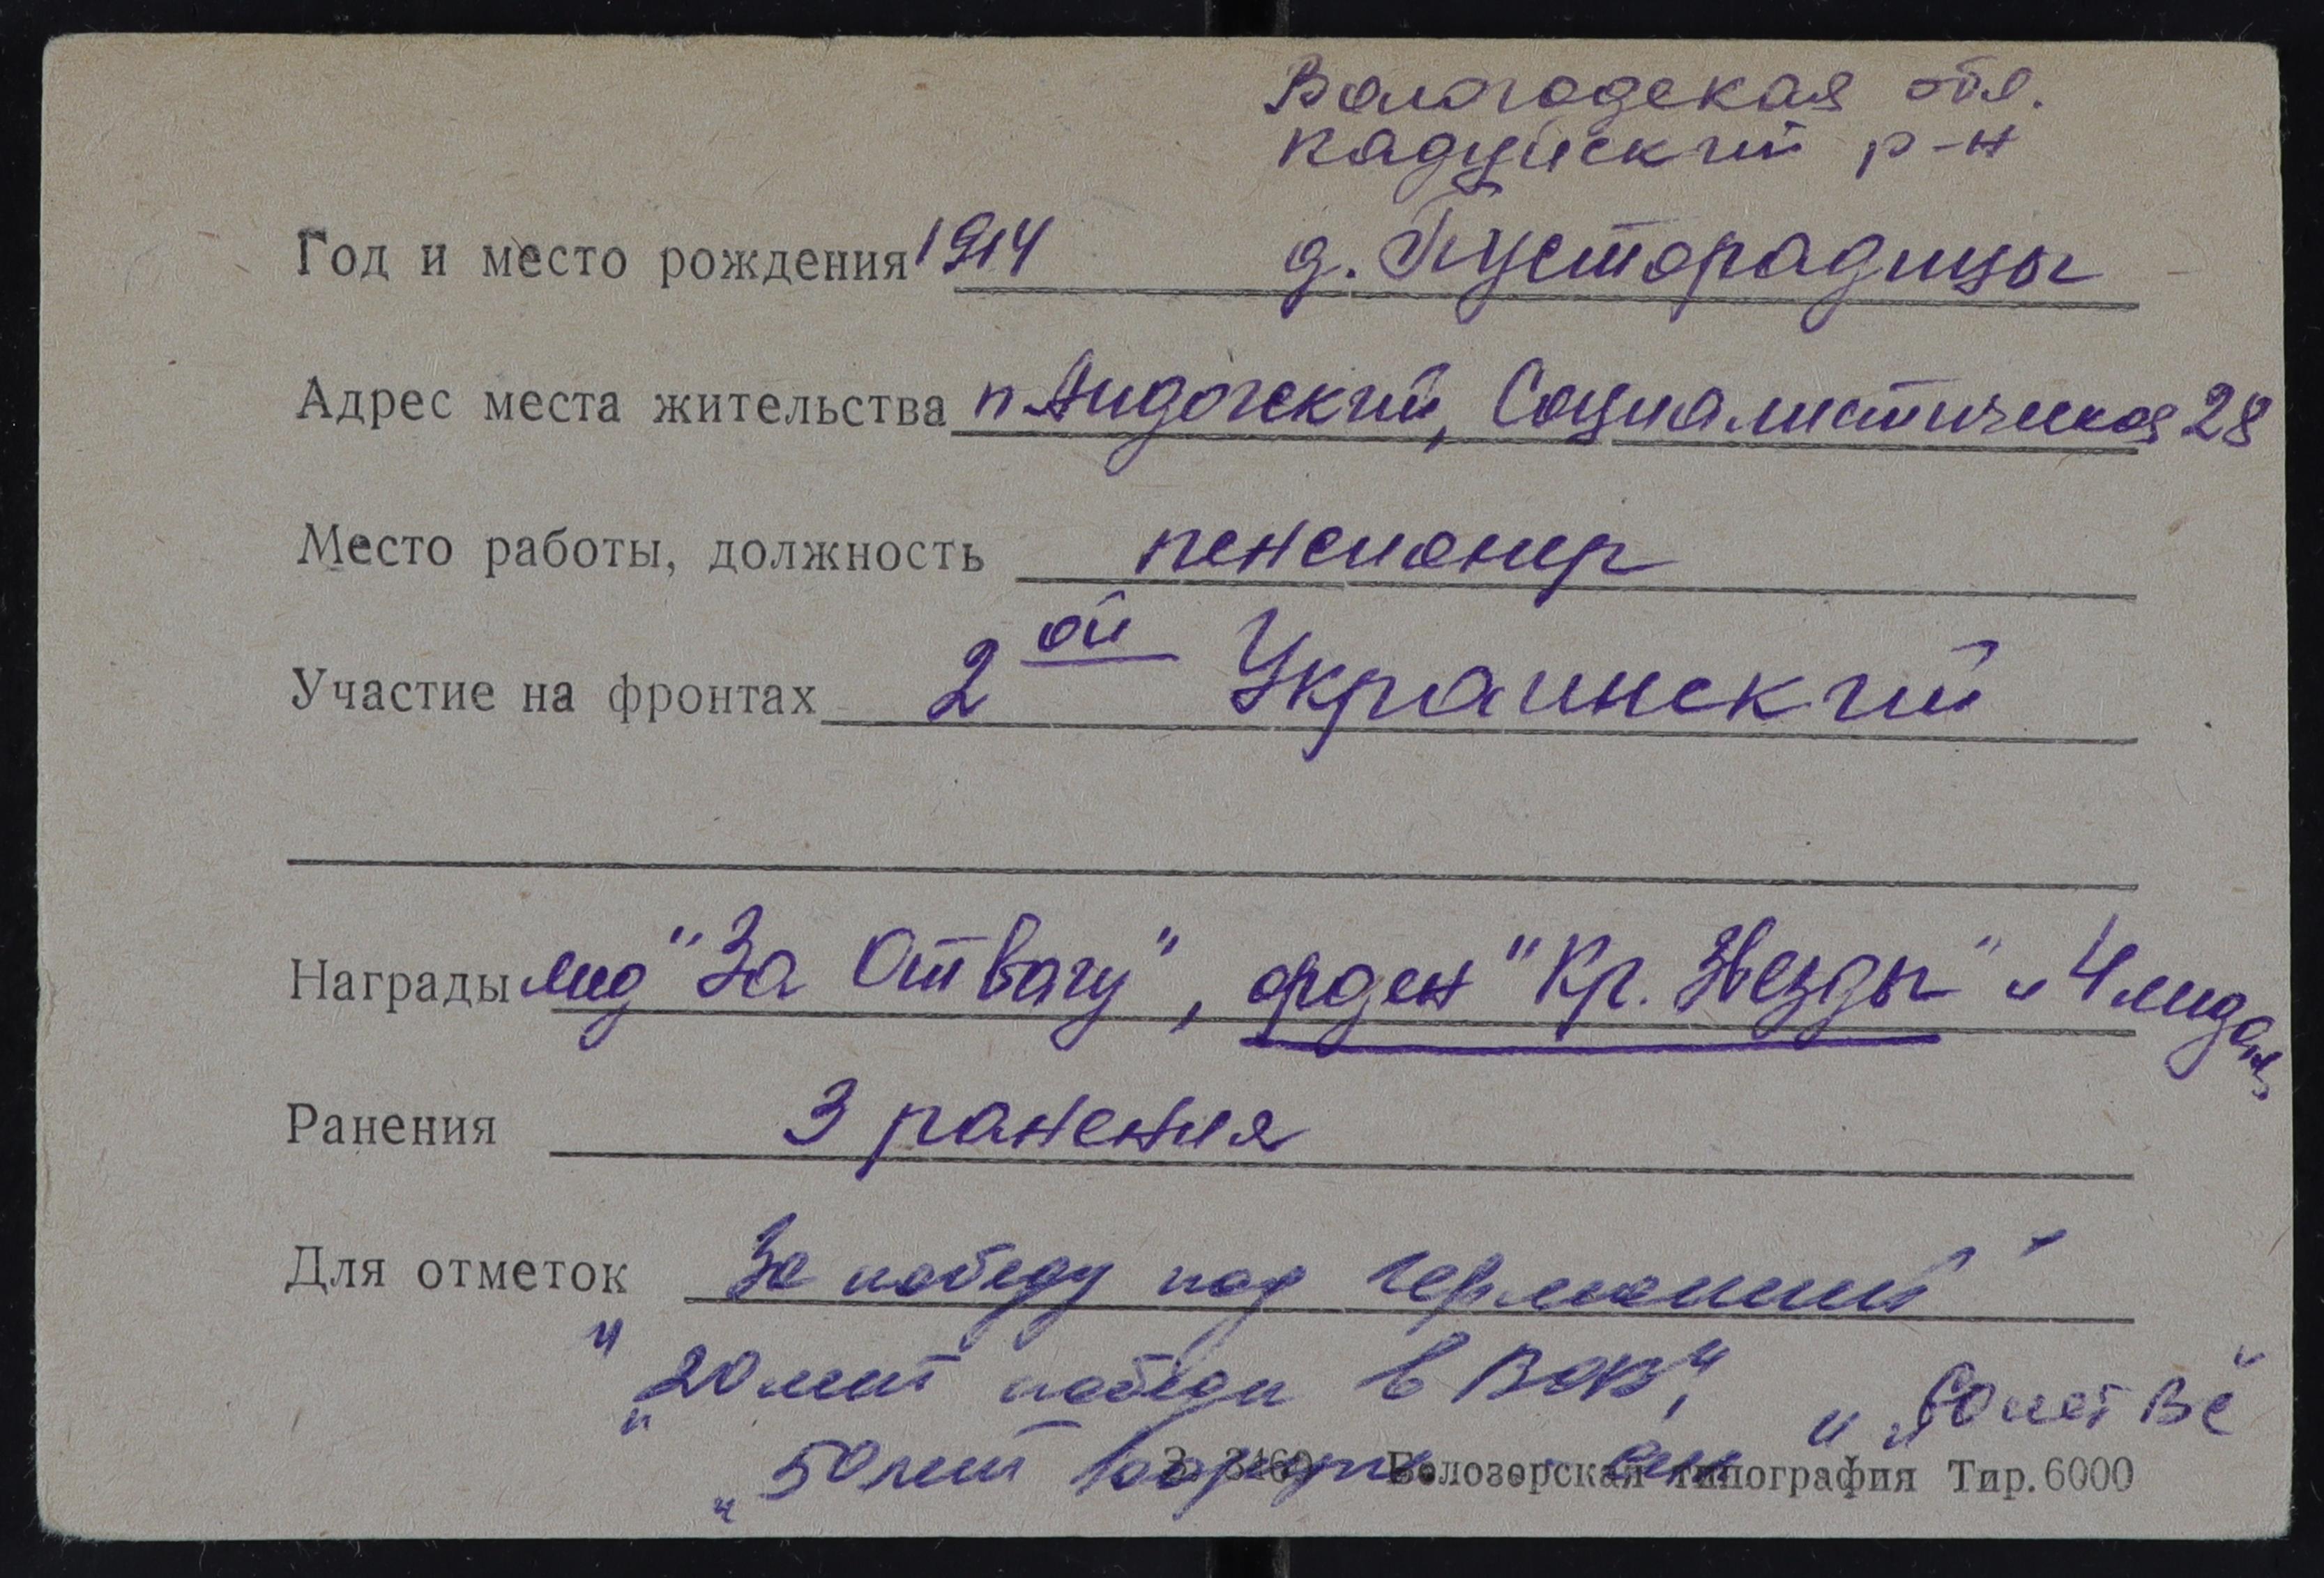 Вологодская обл.
Кадуйский р-н
Год и место рождения 1914 д. Пусторадицы
Адрес места жительства п Андогский, Социалистическая 28
Место работы, должность пенсионер
Участие на фронтах 2ой Украинский
Награды мед "За Отвагу", орден "Кр. Звезды" и 4 медали
Ранения 3 ранения
Для отметок "За победу над Германией"
"20 лет победы в ВОВ", "50 лет ВС"
"50 лет вооруж. сил"
З. 3460 Белозерская типография Тир. 6000